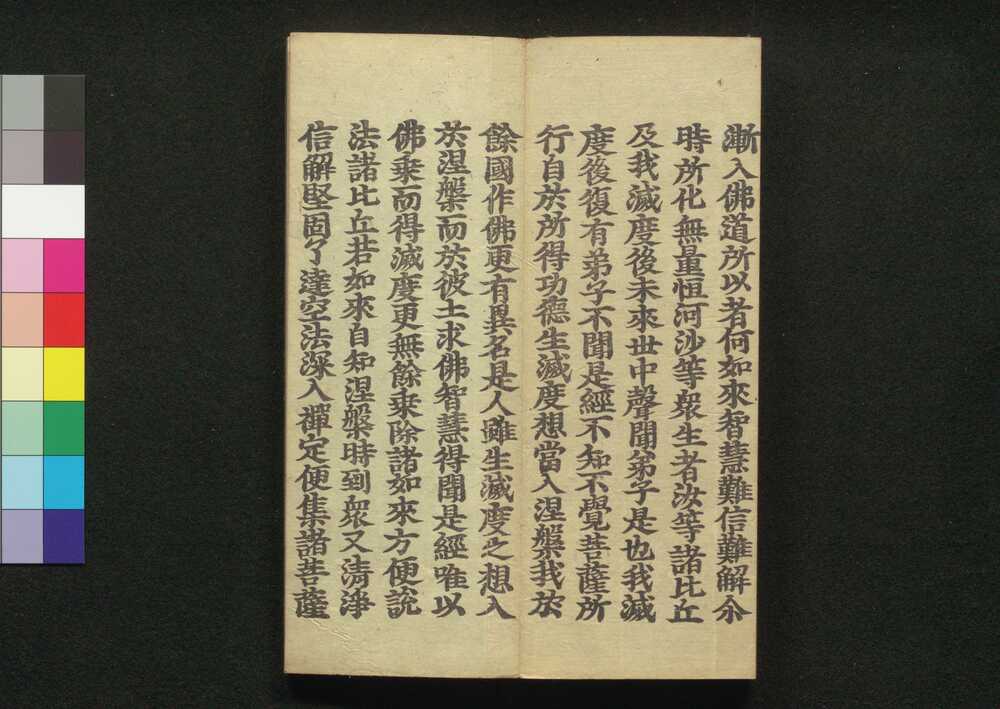 漸入佛道所以者何如來智慧難信難解尒
時所化無量恒河沙等衆生者汝等諸比丘
及我滅度後未來世中聲聞弟子是也我滅
度後復有弟子不聞是經不知不覺菩薩所
行自於所得功德生滅度想當入涅槃我於
餘國作佛更有異名是人雖生滅度之想入
於涅槃而於彼土求佛智慧得聞是經唯以
佛乗而得滅度更無餘乗除諸如來方便說
法諸比丘若如來自知涅槃時到衆又清淨
信解堅固了達空法深入禪定便集諸菩薩